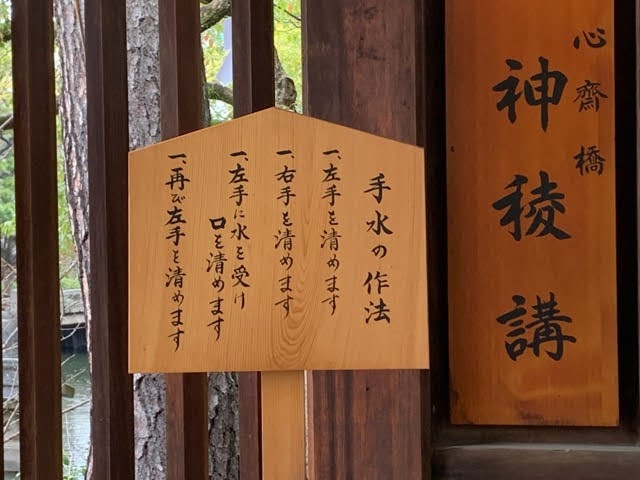 心齋橋
神稜講
手水の作法
一、左手を清めます
一、右手を清めます
一、左手に水を受け
口を清めます
一、再び左手を清めます